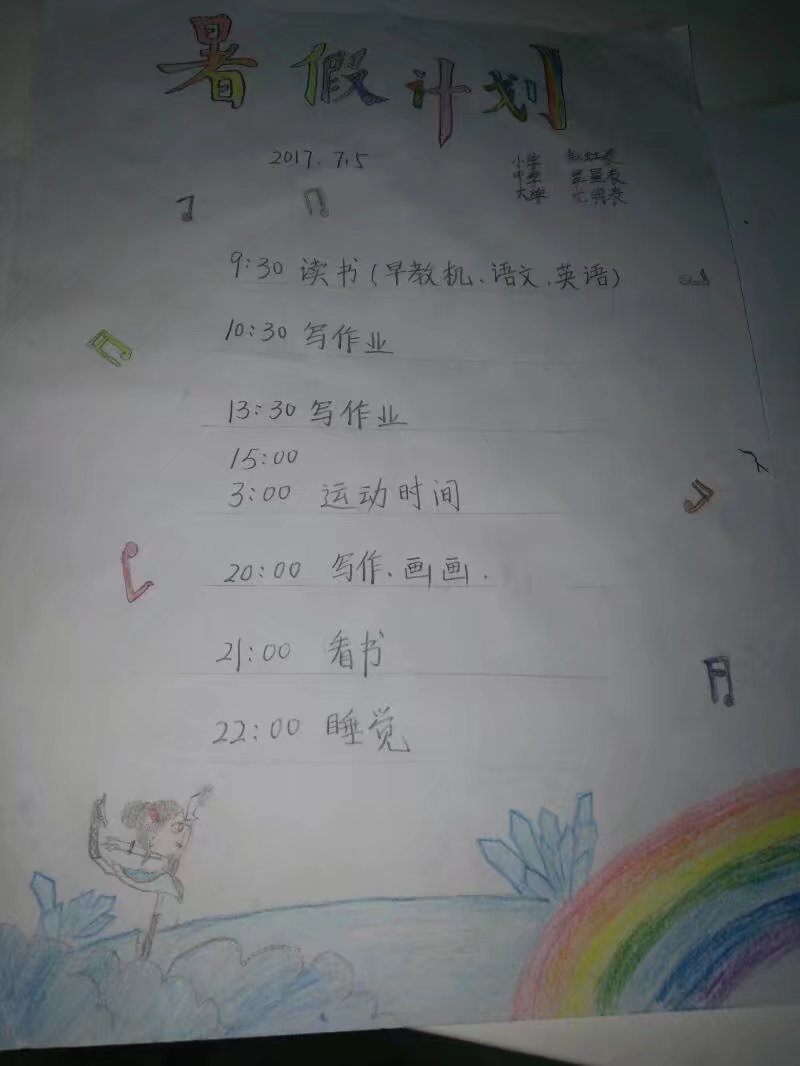 暑假计划
2017.7.5
小学
中学 星星表
大学 光明表
9:30 读书(早教机、语文、英语)
10:30 写作业
13:30 写作业
15:00
3:00 运动时间
20:00 写作、画画.
21:00 看书
22:00 睡觉